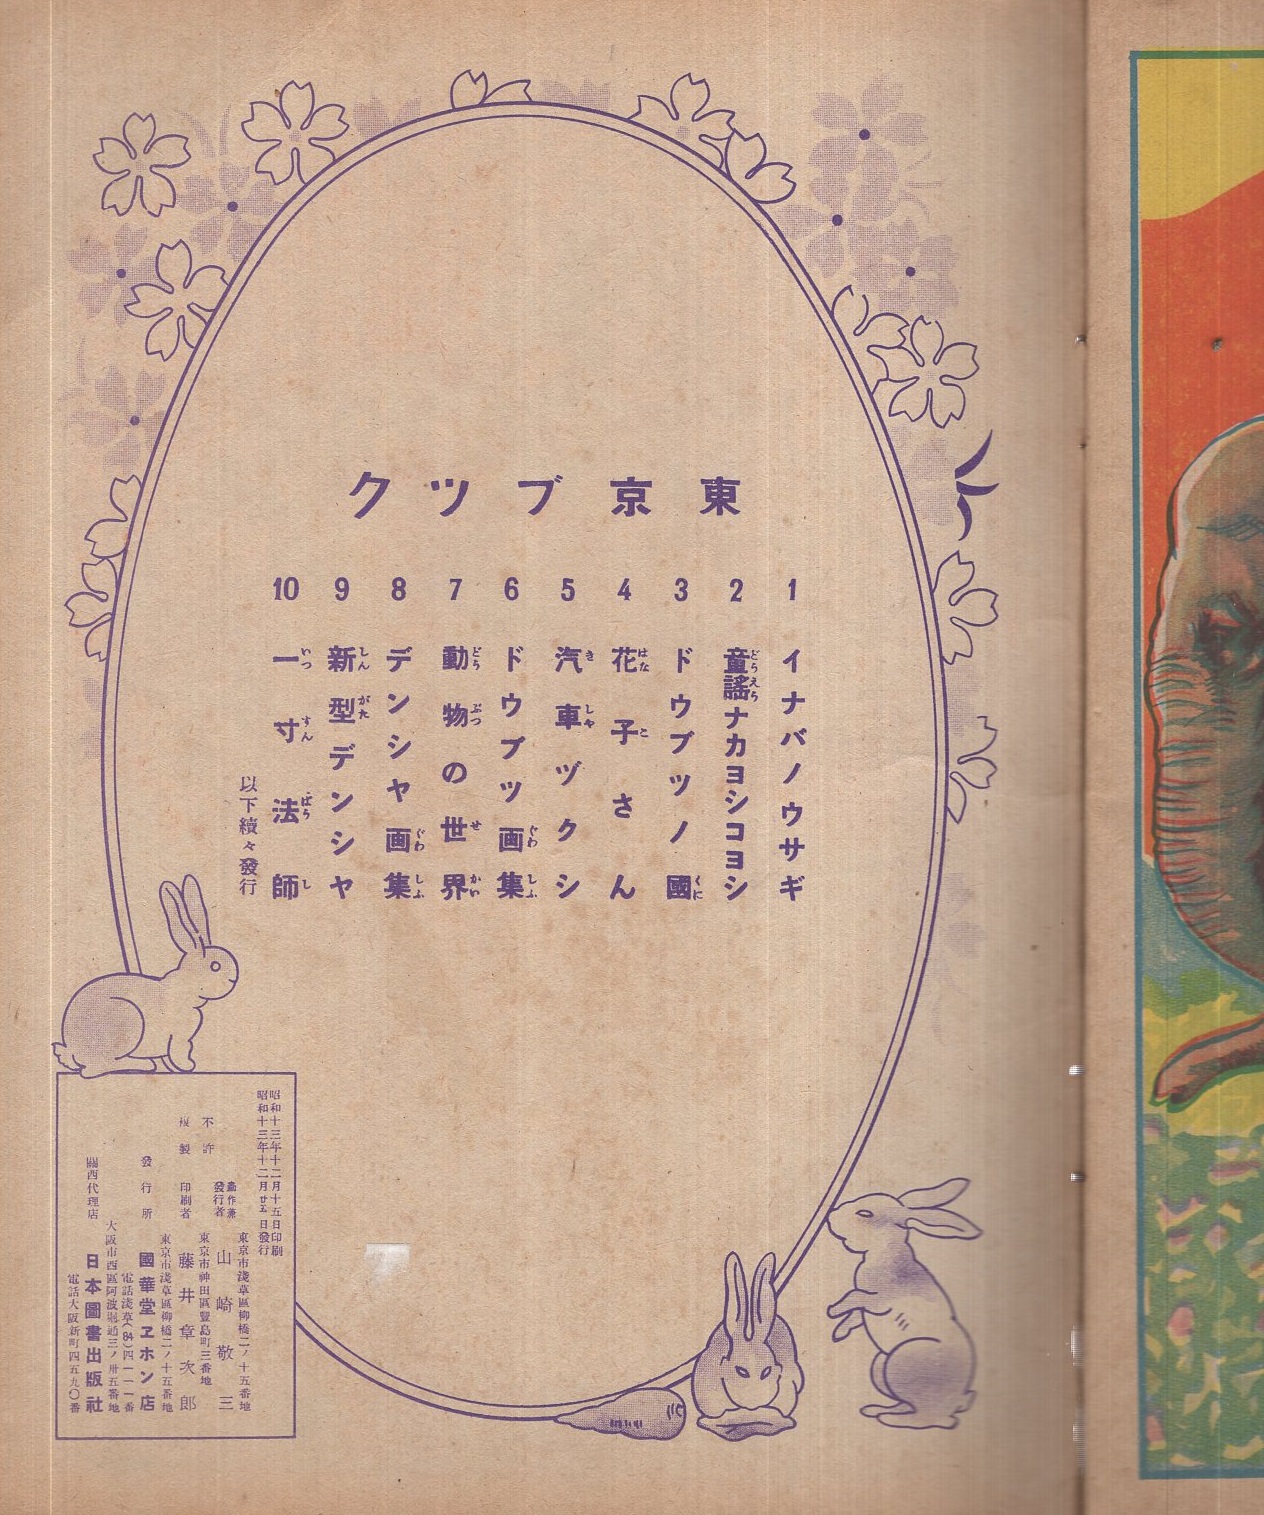 東京ブック
1 イナバノウサギ
2 童謡ナカヨシコヨシ
3 ドウブツノ國
4 花子さん
5 汽車ヅクシ
6 ドウブツ画集
7 動物の世界
8 デンシャ画集
9 新型デンシャ
10 一寸法師
以下續々發行
昭和十三年十二月十五日印刷
昭和十三年十二月廿五日發行
東京市淺草區柳橋二ノ十五番地
著作兼發行者 山崎敬三
東京市神田區豐島町三番地
不許複製 印刷者 藤井章次郎
東京市淺草區柳橋二ノ十五番地
發行所 國華堂ヱホン店
電話淺草(84)四一一一番
大阪市西區阿波堀通三ノ卅五番地
關西代理店 日本圖書出版社
電話大阪新町四五九〇番